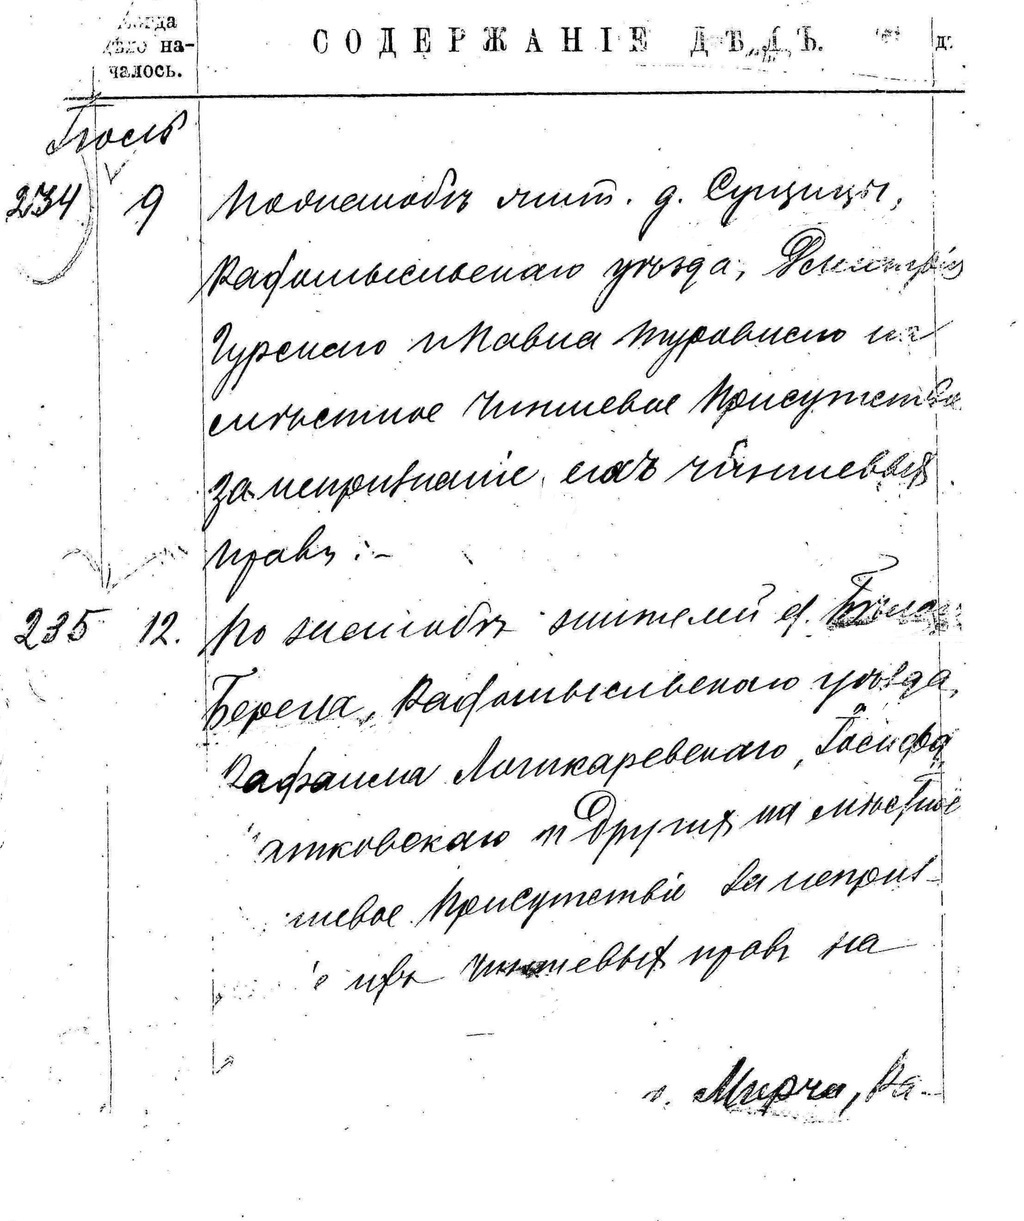 Когда
дѣло на-
чалось.
СОДЕРЖАНІЕ ДѢЛЪ.
Іюль
234 9 По жалобѣ жит. д. Сущицы,
Радомысльскаго уѣзда, Дмитрія
Гурскаго и Павла Журавскаго на
мѣстное Чиншевое Присутствіе
за непризнаніе ихъ чиншевыхъ
правъ :-
235 12. По жалобѣ жителей с.
Берега, Радомысльскаго уѣзда,
Рафаила Лошкаревскаго, Іосифа
атковскаго и другихъ на мѣстное
шевое Присутствіе за непризн-
е ихъ чиншевыхъ правъ на
Мирча, Ра-